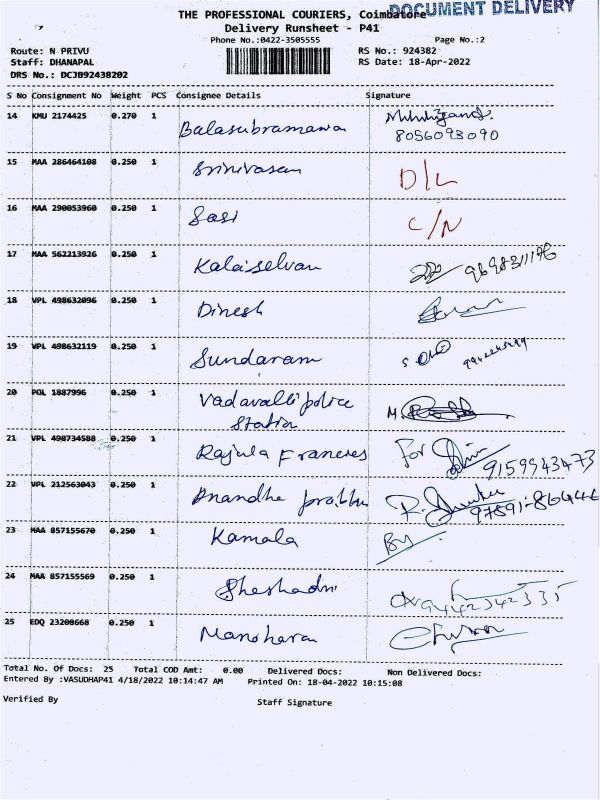 DOCUMENT DELIVERY
THE PROFESSIONAL COURIERS, Coimbatore
Delivery Runsheet - P41
Phone No.:0422-3505555 Page No.:2
Route: N PRIVU RS No.: 924382
Staff: DHANAPAL RS Date: 18-Apr-2022
DRS No.: DCJB92438202
S No Consignment No Weight PCS Consignee Details Signature
14 KMU 2174425 0.270 1 Balasubramawa
8056093090
15 MAA 286464108 0.250 1 Srinivasan D/L
16 MAA 290053960 0.250 1 Sasi C/N
17 MAA 562213926 0.250 1 Kalaiselvan 9698311176
18 VPL 498632096 0.250 1 Dinesh
19 VPL 498632119 0.250 1 Sundaram
20 POL 1887996 0.250 1 Vadavalli police
Station
21 VPL 498734588 0.250 1 Rajula Franceres For
9159943473
22 VPL 212563043 0.250 1 Anandha prabhu
23 MAA 857155670 0.250 1 Kamala By
24 MAA 857155569 0.250 1 Sheshadri
9442342335
25 EDQ 23208668 0.250 1 Manoharan
Total No. Of Docs: 25 Total COD Amt: 0.00 Delivered Docs: Non Delivered Docs:
Entered By :VASUDHAP41 4/18/2022 10:14:47 AM Printed On: 18-04-2022 10:15:08
Verified By Staff Signature